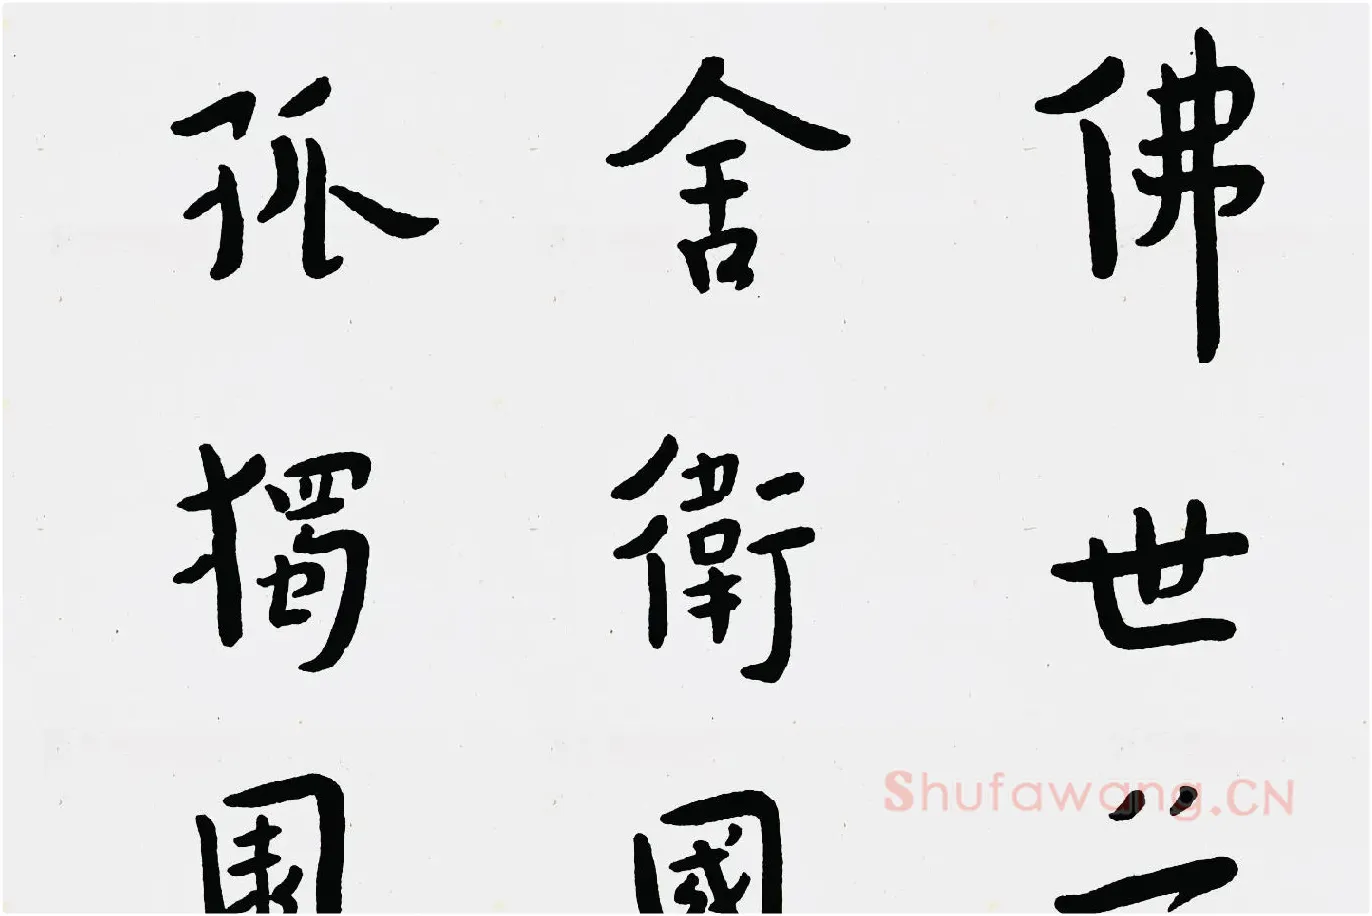 佛世
舍衛國
孤獨園
Shufawang.CN